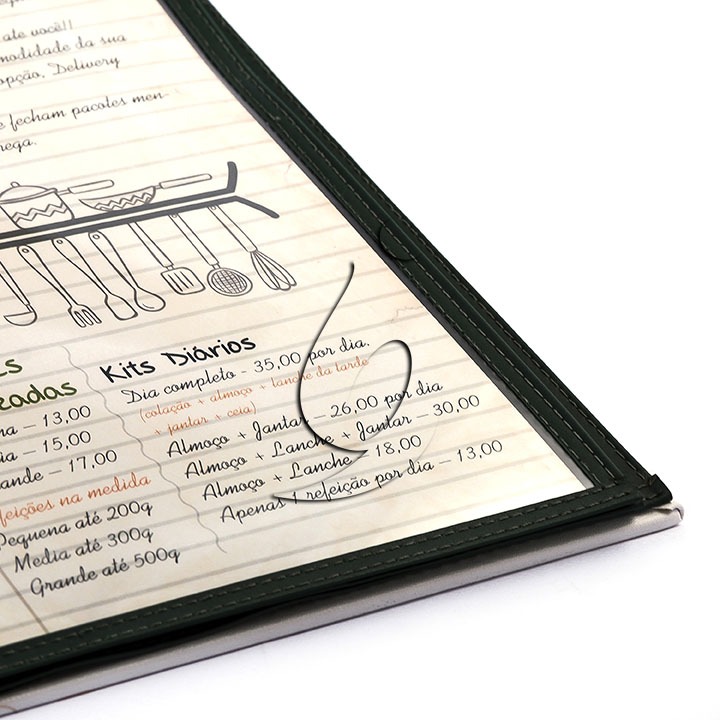 ate você!!
modidade da sua
opção, Delivery
e fecham pacotes men-
rega.
Kits Diários
Dia completo - 35,00 por dia.
(colação + almoço + lanche da tarde
+ jantar + ceia)
Almoço + Jantar – 26,00 por dia
Almoço + Lanche + Jantar – 30,00
Almoço + Lanche – 18,00
Apenas 1 refeição por dia – 13,00
eadas
na – 13,00
ia – 15,00
ande – 17,00
feições na medida
Pequena até 200g
Media até 300g
Grande até 500g